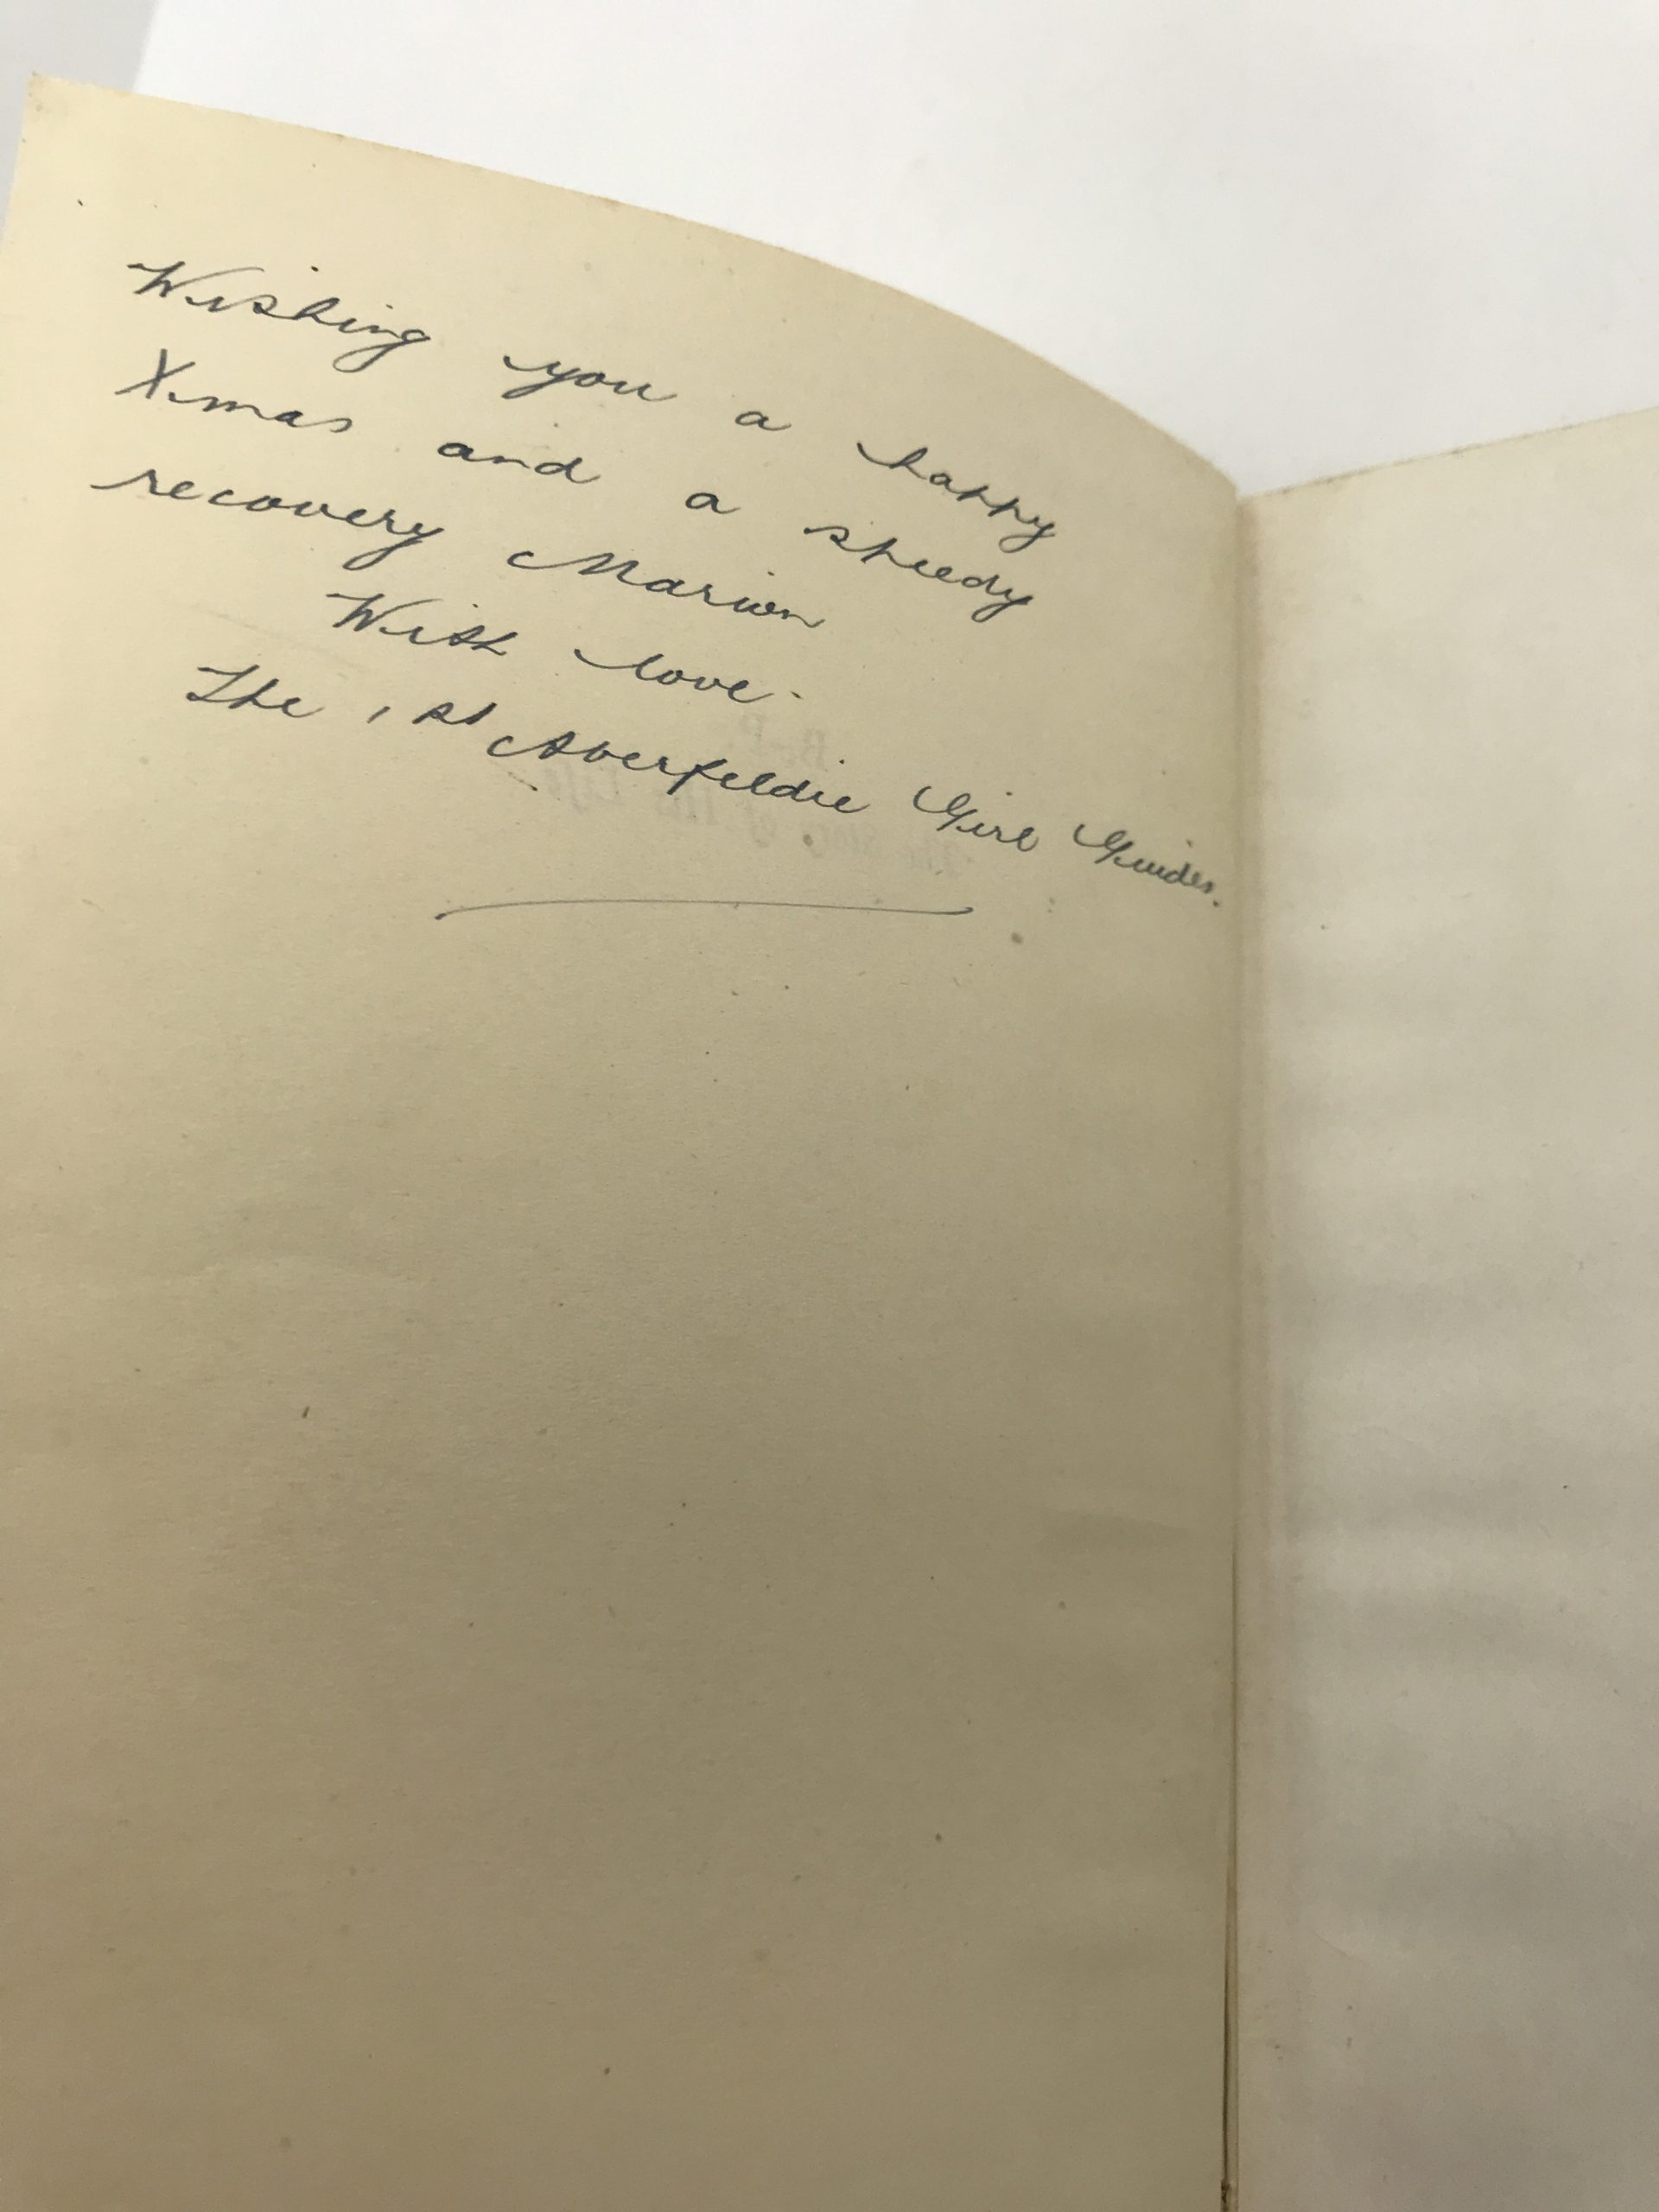 Wishing you a happy
Xmas and a speedy
recovery Marion
With love.
The 1st Aberfeldie Girl Guides.
B.-P.
The Story of His Life